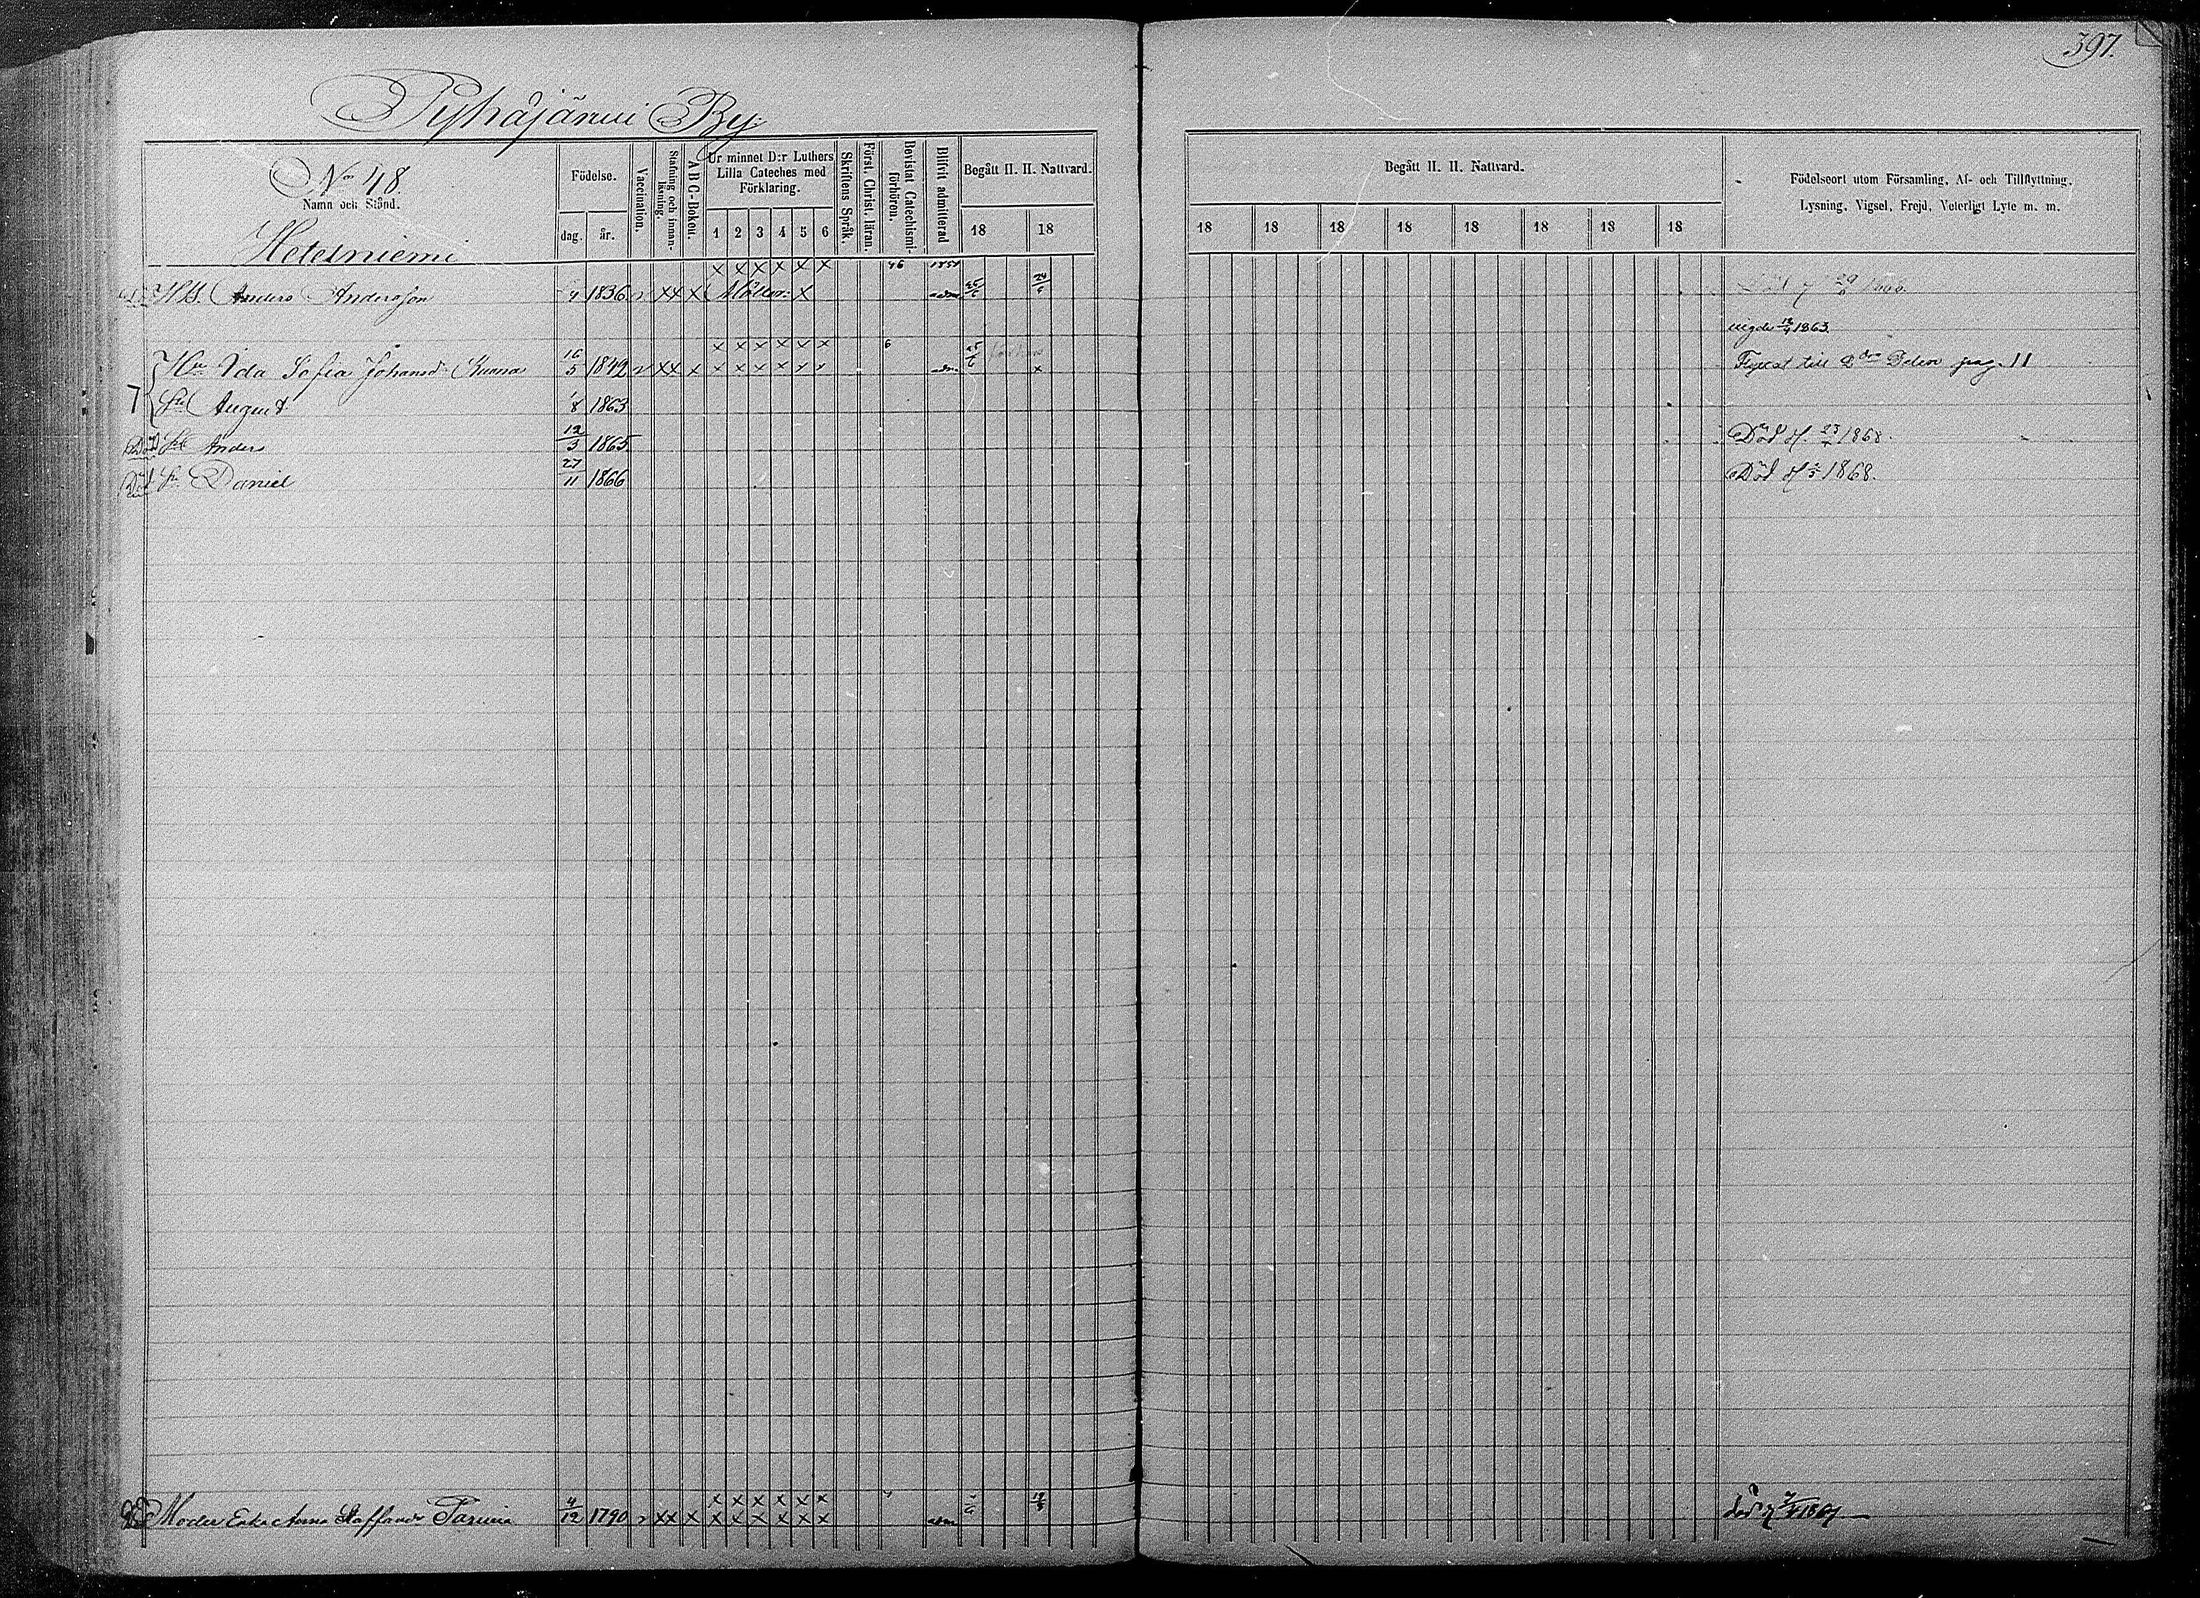 397.
Pyhäjärvi By.
No 48.
Namn och Stånd.
Hetesniemi
Födelse.
dag. år.
Vaccination.
Stafning och innanläsning.
A B C-Boken.
Ur minnet D:r Luthers Lilla Cateches med Förklaring.
1 2 3 4 5 6
Skriftens Språk.
Först. Christ. läran.
Bevistat Catechismi-förhören.
Blifvit admitterad
Begått H. H. Nattvard.
18 18
Begått H. H. Nattvard.
18 18 18 18 18 18 18 18
Födelseort utom Församling, Af- och Tillflyttning,
Lysning, Vigsel, Frejd, Veterligt Lyte m. m.
x x x x x x
Anders Andersson 4 1836 v xx x x adm
vigde 1863.
x x x x x x 6
Hu Ida Sofia Johansd 16/5 1842 v xx x x x x x x x adm x Flyttat till 2dra Delen pag. 11
7 Son August 8 1863
Död Son Anders 12/3 1865 Död d. 23/ 1868.
Död Son Daniel 27/11 1866 Död d 1868.
x x x x x x
Död Moder Enka Anna Staffansd 4/12 1790 v xx x x x x x x x adm död d